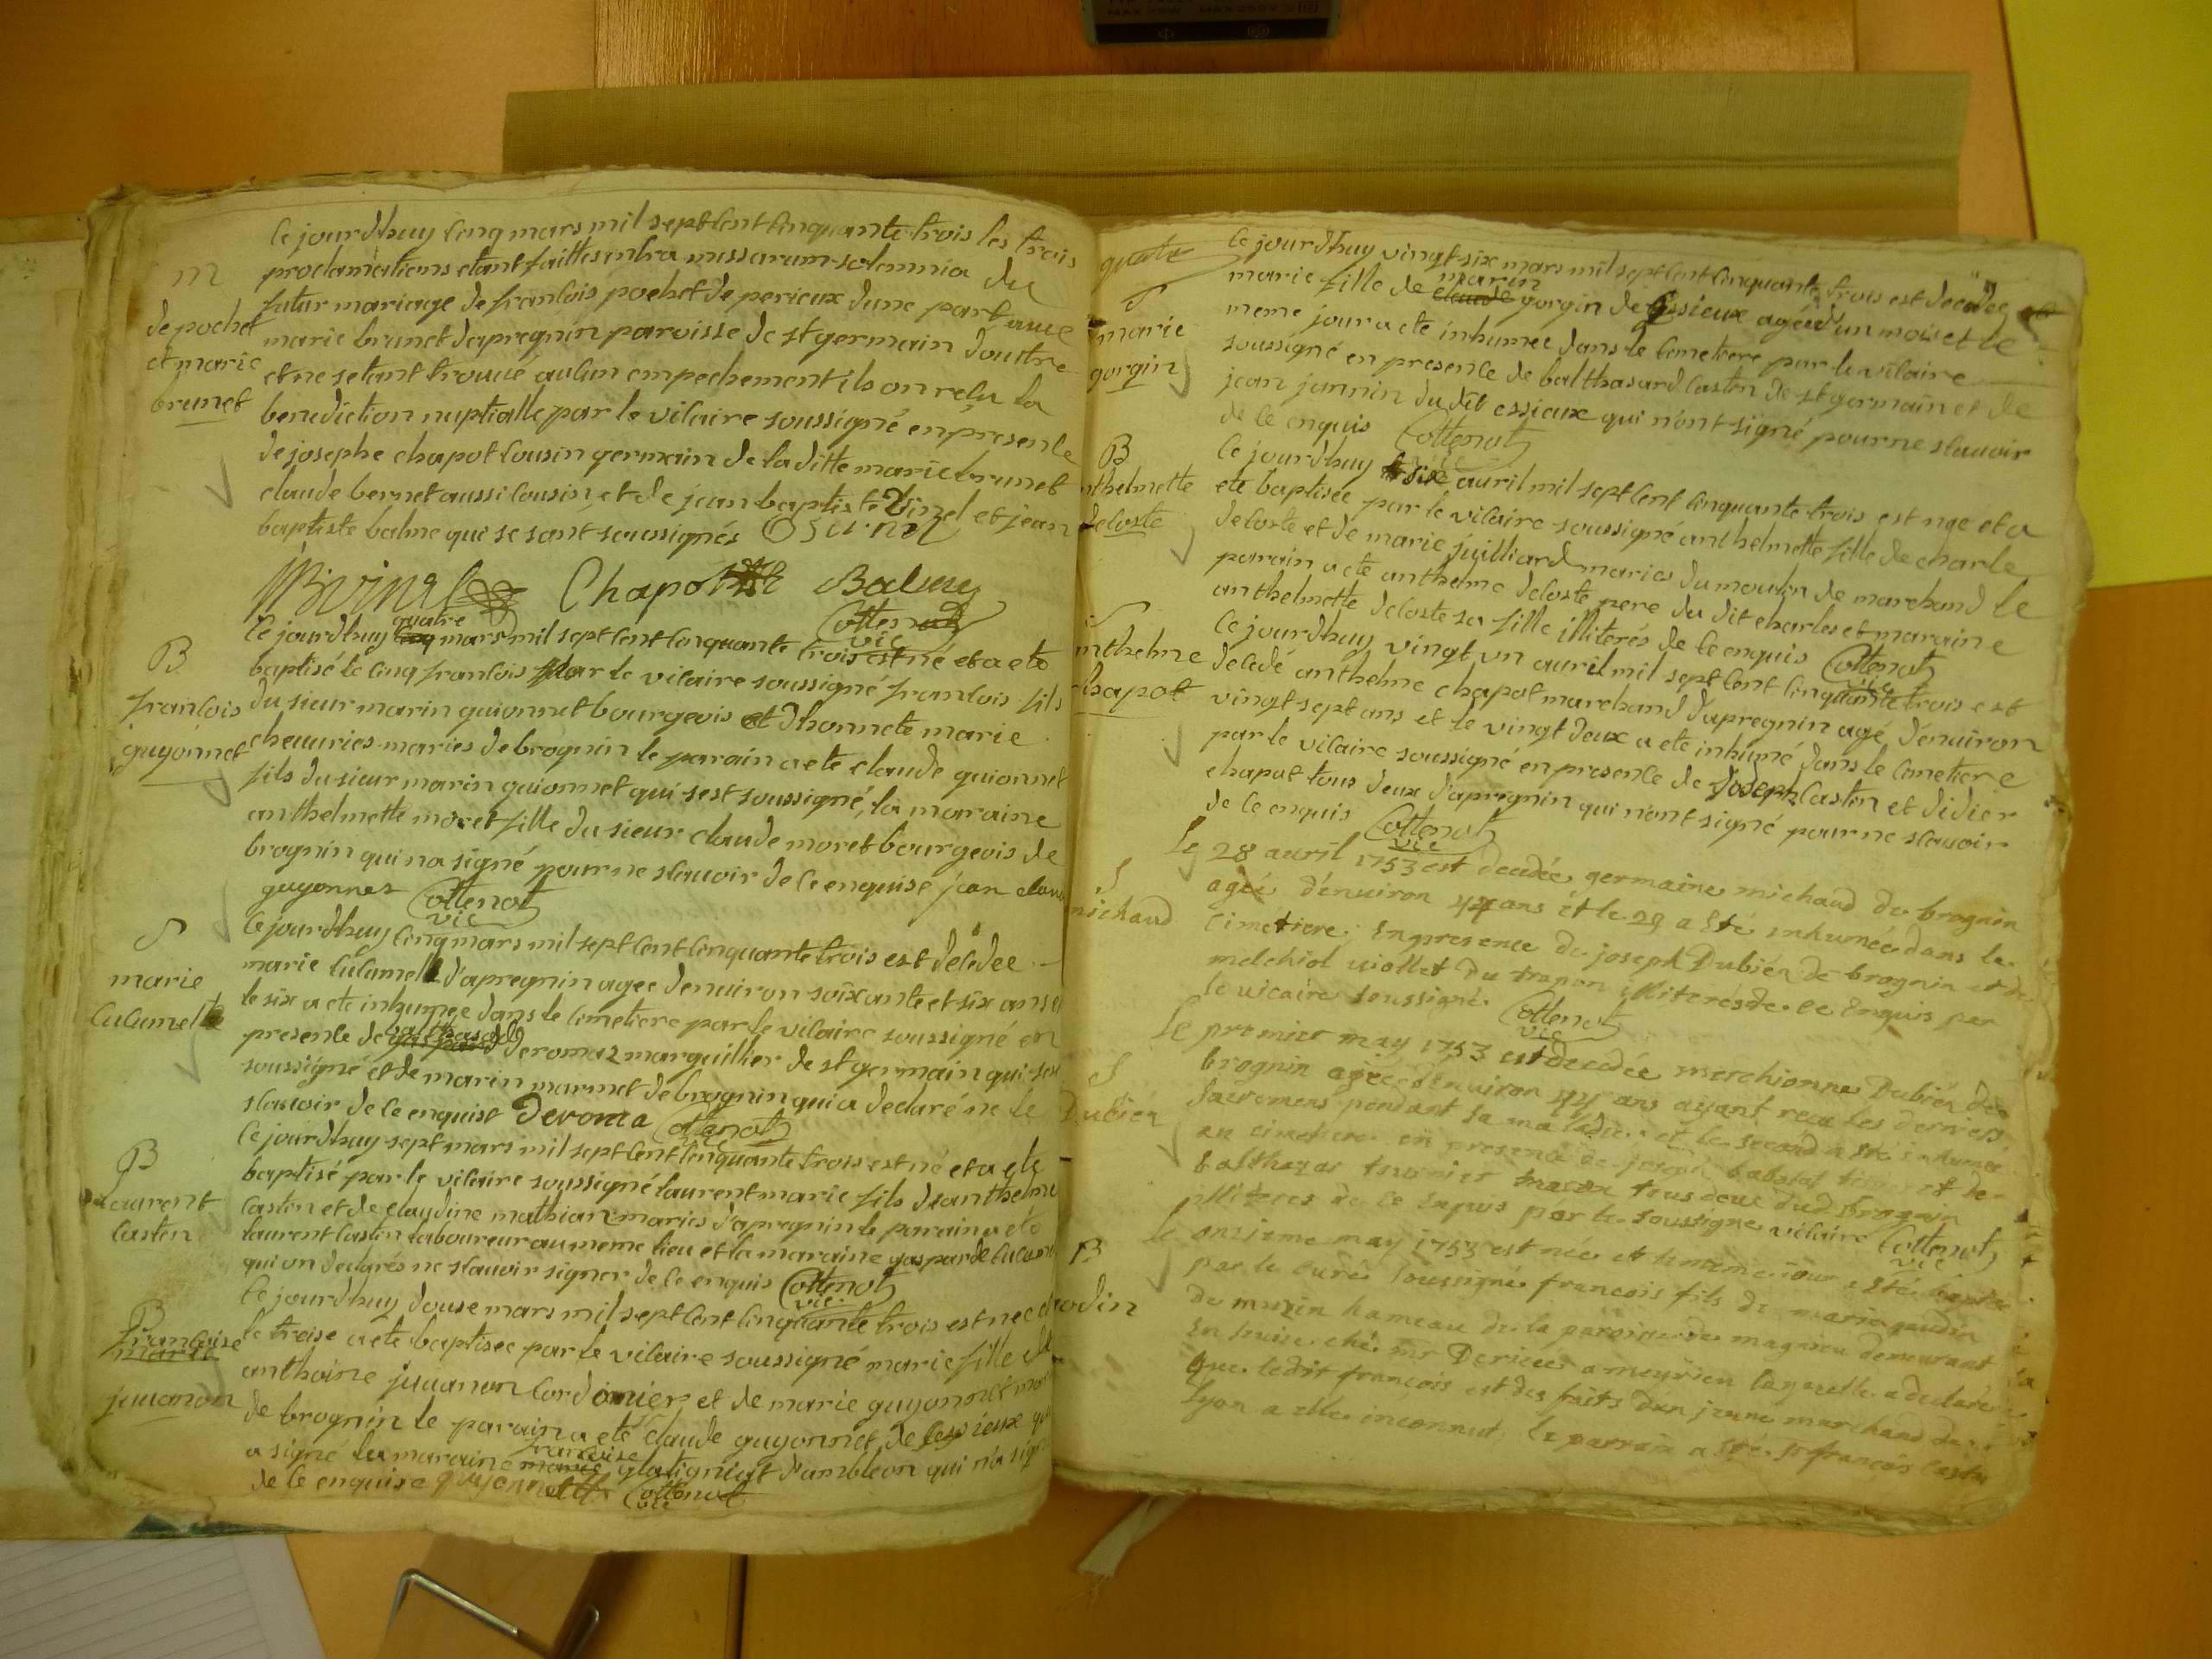 ce jourdhuy cinq mars mil sept cent cinquante trois les trois
proclamations etant faittes intra missarum solemnia du
futur mariage de francois pochet de perieux dune part avec
marie brunet dapregnin paroisse de st germain doutre
et ne setant trouvé aucun empechement ils on recu la
benediction nuptialle par le vicaire soussigné en presence
de josephe chapot cousin germain de la ditte marie brunet
claude bernet aussi cousin, et de jean baptiste Vinel et jean
baptiste balme qui se sont soussignés
m
de pochet
et marie
brunet
Chapot Balmy
Cottenot
vic
ce jourdhuy quatre mars mil sept cent cinquante trois est né et a ete
baptisé le cinq francois par le vicaire soussigné francois fils
du sieur marin guionnet bourgeois et d'honnete marie
chevuries maries de brognin le parain a ete claude guionnet
fils du sieur marin guionnet qui s'est soussigné, la maraine
anthelmette moret fille du sieur claude moret bourgeois de
brognin qui na signé pour ne scavoir de ce enquise jean claud
guyonnet Cottenot
vic
B
francois
guyonnet
ce jourdhuy cinq mars mil sept cent cinquante trois est decedee
marie cucumelle d'apregnin agee denviron soixante et six ans et
le six a ete inhumee dans le cimetiere par le vicaire soussigné en
presence de balthasard deromaz marguillier de st germain qui sest
soussigné et de marin marmet de brognin qui a declaré ne le
scavoir de ce enquist Deroma Cottenot
S
marie
Cucumelle
ce jourdhuy sept mars mil sept cent cinquante trois est né et a ete
baptisé par le vicaire soussigné laurent marie fils d'anthelme
Castin et de claudine mathian maries d'apregnin le parain a ete
laurent Castin laboureur au meme lieu et la maraine gasparde cucume
qui on declarés ne scavoir signer de ce enquis Cottenot
vic
B
Laurent
Castin
ce jourdhuy douse mars mil sept cent cinquante trois est nee et
le treise a ete baptisee par le vicaire soussigné marie fille de
anthoine juuanon Cordonnier et de marie guyonnet
de brognin le parain a eté claude guyonnet de
a signé la maraine francoise glatigniat d'ambleon qui n'a signé
de ce enquise guyonnet Cottenot
vic
B
francoise
marie
juuanon
ce jourdhuy vingt-six mars mil sept cent cinquante trois est decedee et
marie fille de marin claude gorgin de Essieux agée d'un mois et le
meme jour a ete inhumee dans le cimetiere par le vicaire
soussigné en presence de balthasard Castin de st germain et de
jean jannin du dit essieux qui n'ont signé pour ne scavoir
de ce enquis Cottenot
vic
S
marie
gorgin
ce jourdhuy six auril mil sept cent cinquante trois est nee et a
ete baptisée par le vicaire soussigné anthelmette fille de charle
decoste et de marie juilliard maries du moulin de marchand le
parrain a ete anthelme decoste pere du dit charles et maraine
anthelmette decoste sa fille illiterés de ce enquis Cottenot
vic
B
nthelmette
decoste
ce jourdhuy vingt un auril mil sept cent cinquante trois est
decedé anthelme chapot marchand d'apregnin agé d'enuiron
vingt sept ans et le vingt deux a ete inhumé dans le cimetiere
par le vicaire soussigné en presence de Joseph Castin et didier
chapot tous deux d'apregnin qui n'ont signé pour ne scavoir
de ce enquis Cottenot
vic
S
nthelme
chapot
Le 28 auril 1753 est decedée germaine michaud de brognin
agée d'enuiron 44 ans et le 29 a eté inhumée dans le
cimetiere en presence de joseph Dubien de brognin et de
melchiol uiollet du illiterés de ce Enquis par
le uicaire soussigné. Cottenot
vic
S
michaud
Le premier may 1753 est decedée merchionne Dubien de
brognin agée d'enuiron ans ayant receu les derniers
sacremens pendant sa maladie et le second a eté inhumée
au cimetiere en presence de joseph et de
balthazar tournier tous deux dud brognin
illiterés de ce enquis par le soussigné vicaire Cottenot
vic
S
Dubien
Le onzieme may 1753 est née et le meme jour a eté baptisé
par le curé soussigné francois fils de marie gaudin
de hameau de la paroisse de magnieu demeurant
en seruice ché mr a meyrieu laquelle a declaré
que ledit francois est des faits d'un jeune marchand de
Lyon a elle inconnut, le parrain a eté sr francois Castin
B